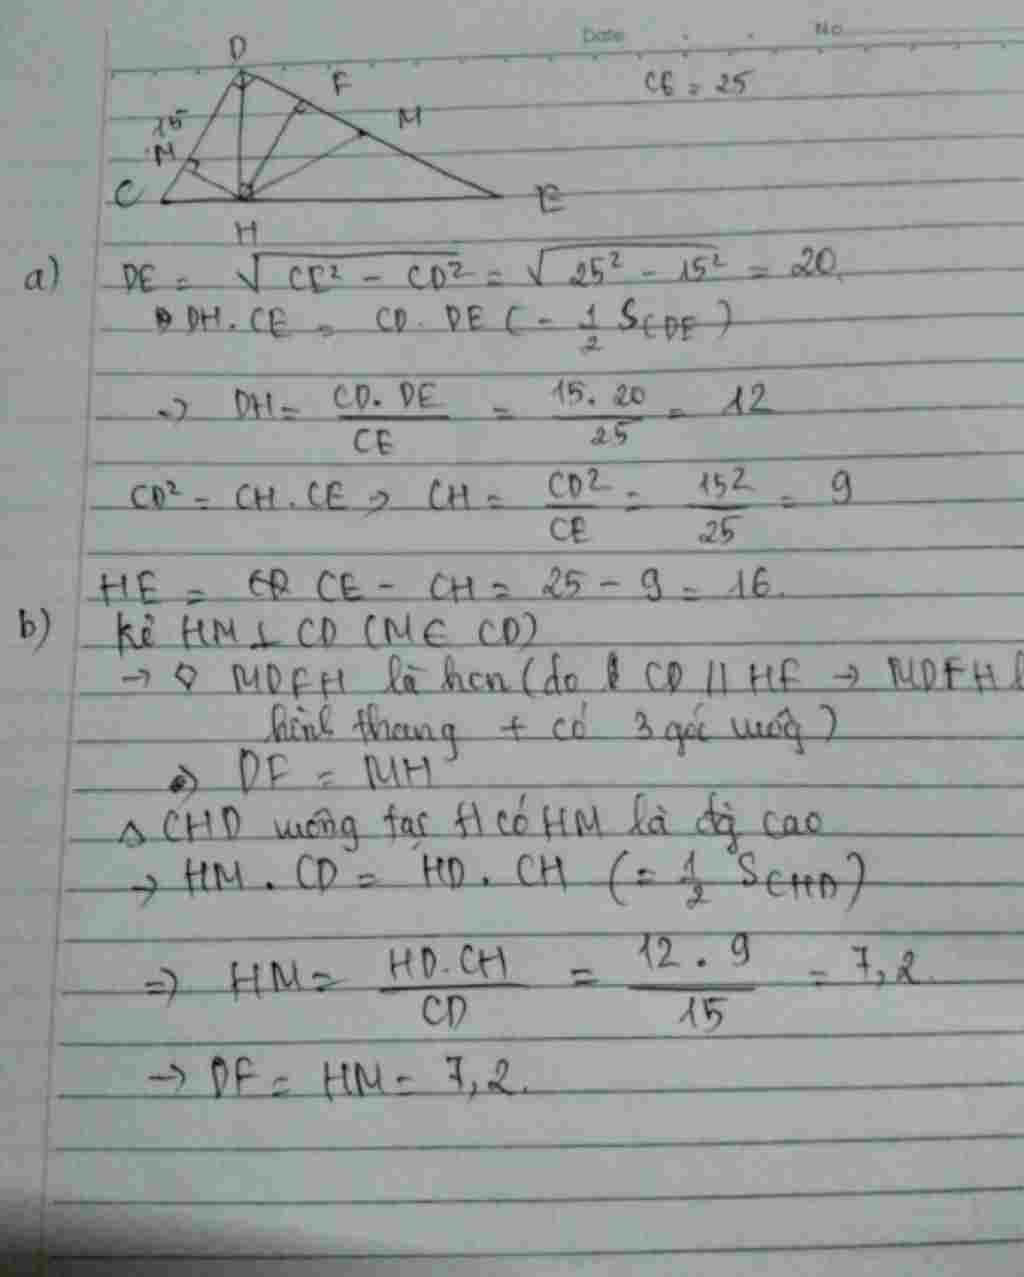 Date No
D
F
CE = 25
M
15
M
C
E
H
a) DE = √CE² - CD² = √25² - 15² = 20.
DH.CE = CD. DE ( = 1/2 SCDE )
=> DH = CD. DE / CE = 15. 20 / 25 = 12
CD² = CH.CE => CH = CD² / CE = 15² / 25 = 9
HE = CE - CH = 25 - 9 = 16.
b) Kẻ HM ⊥ CD (M ∈ CD)
→ ◇ MDFH là hcn (do CD // HF → MDFH l
hình thang + có 3 góc vuông )
=> DF = MH
△ CHD vuông tại H có HM là đg cao
→ HM . CD = HD . CH ( = 1/2 SCHD )
=> HM = HD.CH / CD = 12 . 9 / 15 = 7,2.
→ DF = HM = 7,2.